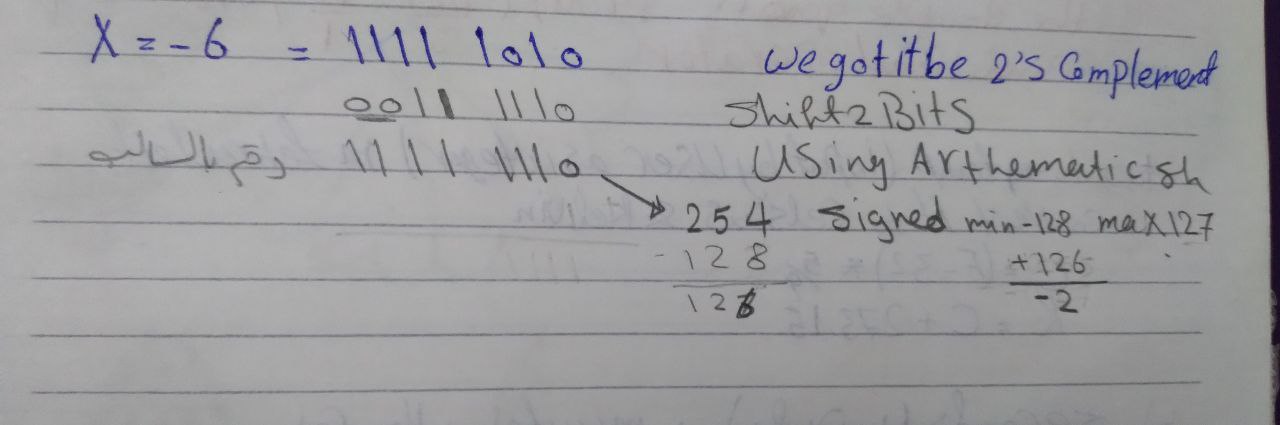 X = -6 = 1111 1010 We got it be 2's Complement
0011 1110 Shift 2 Bits
رقم بالسالب 1111 1110 Using Arthematic sh
254 Signed min -128 max 127
-128 +126
126 -2